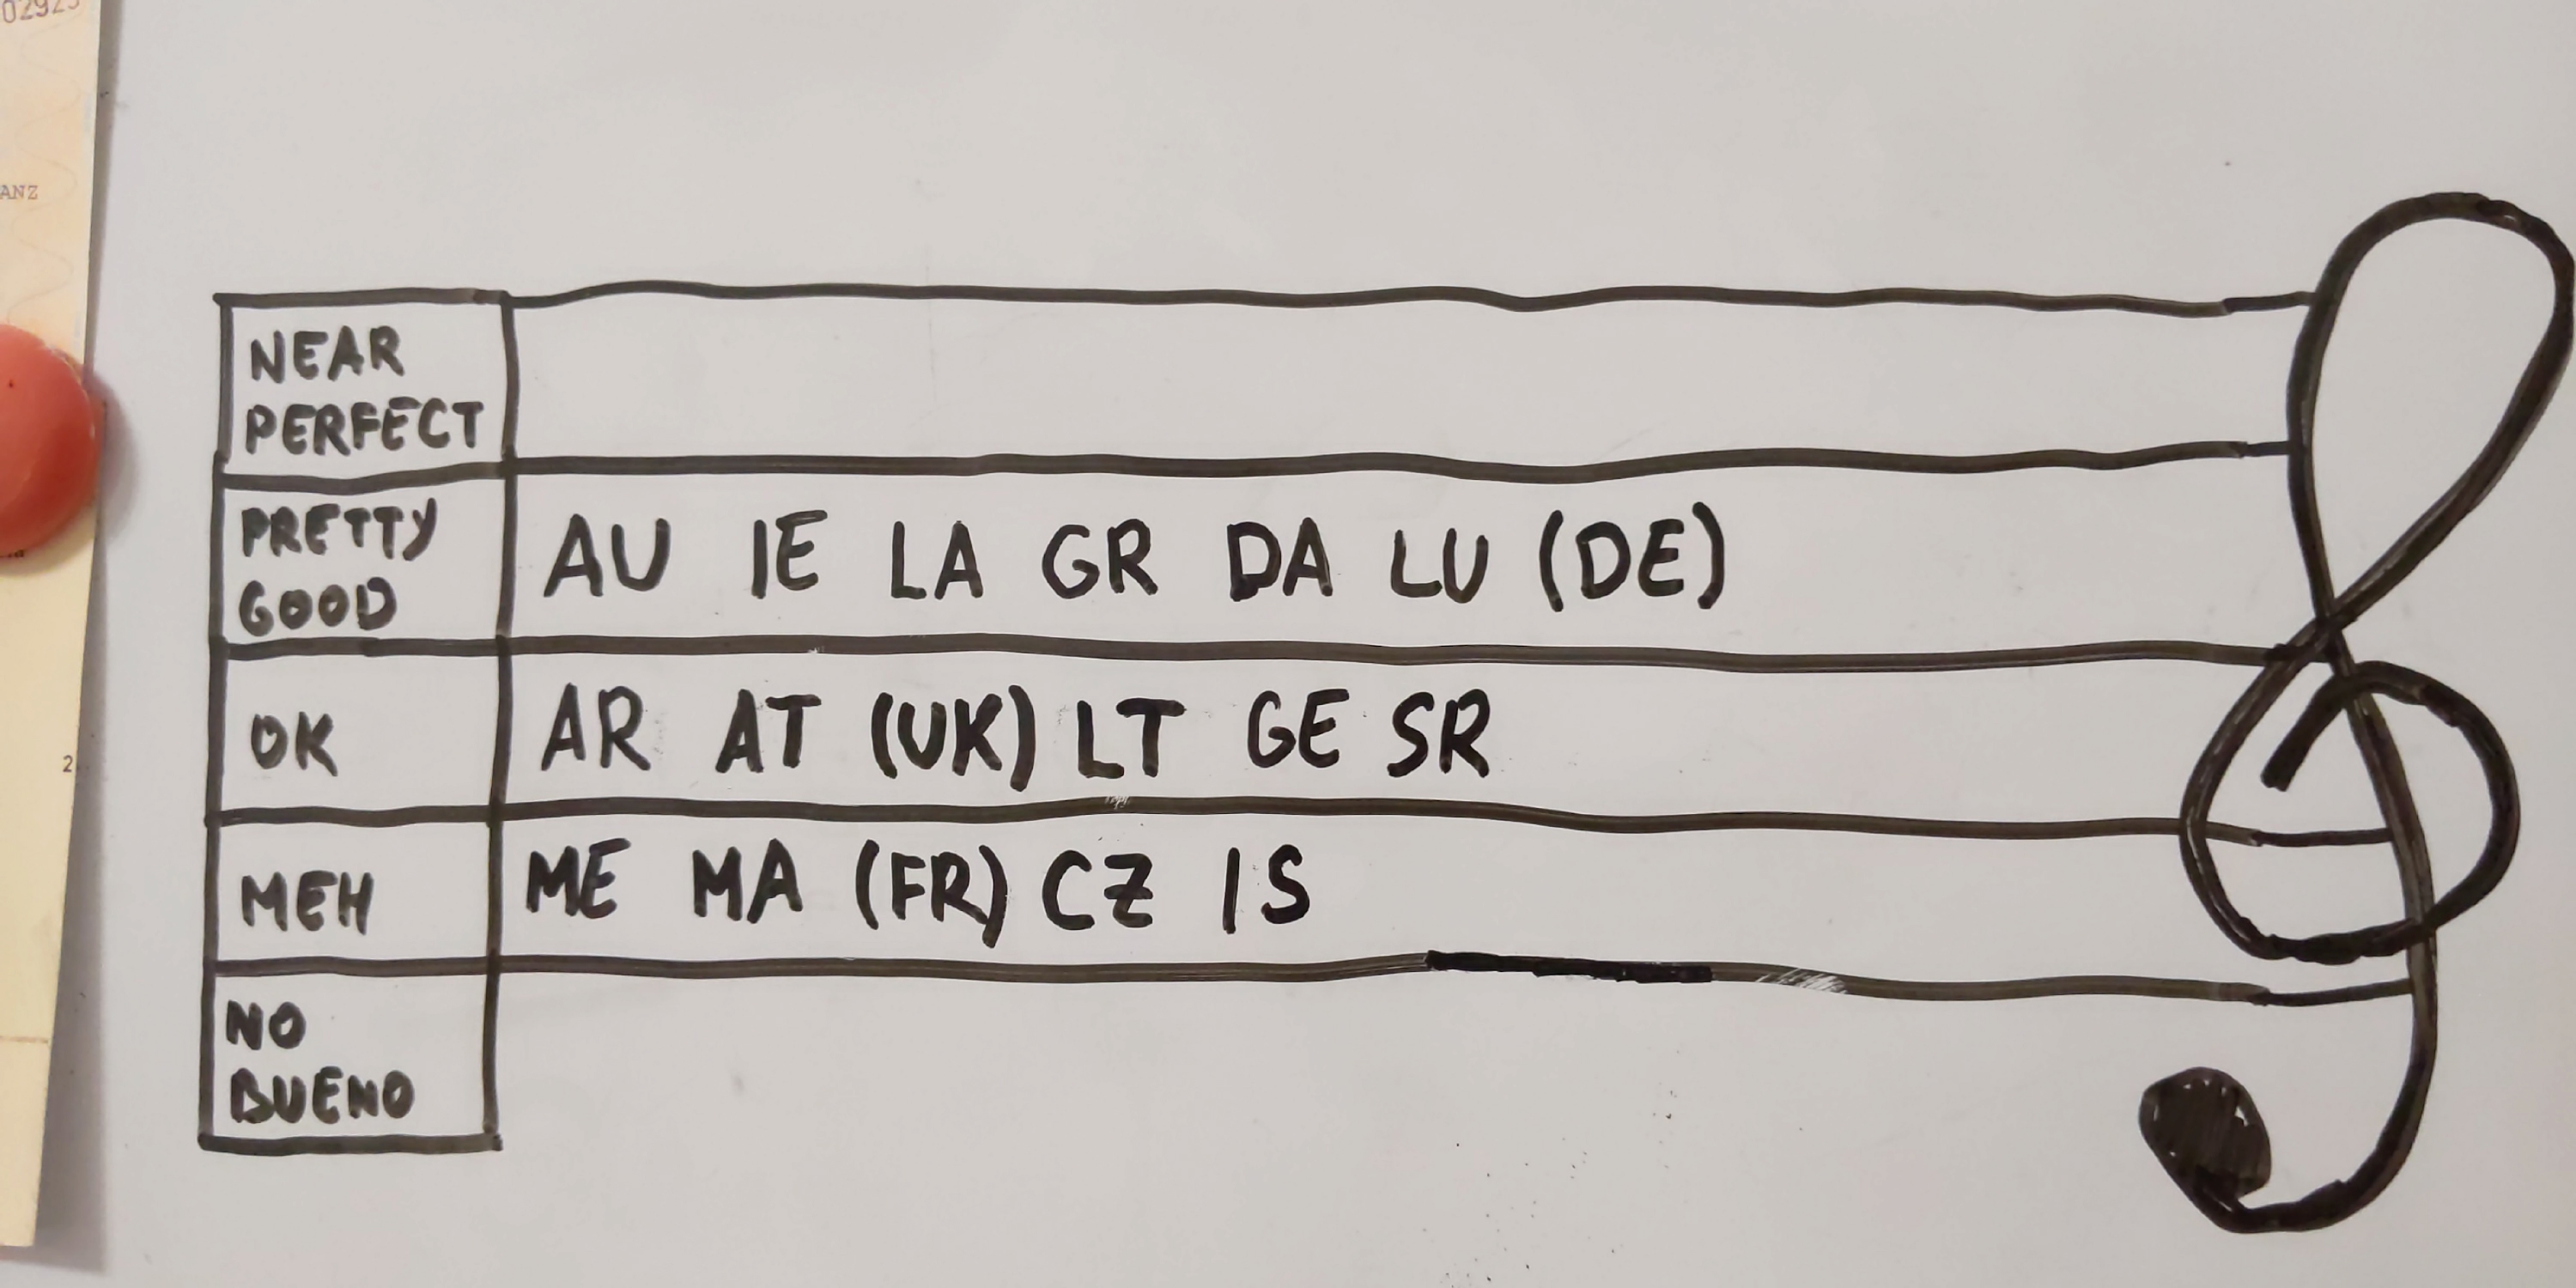 02923
ANZ
NEAR
PERFECT
PRETTY
GOOD
AU IE LA GR DA LU (DE)
OK
AR AT (UK) LT GE SR
MEH
ME MA (FR) CZ IS
NO
BUENO
2